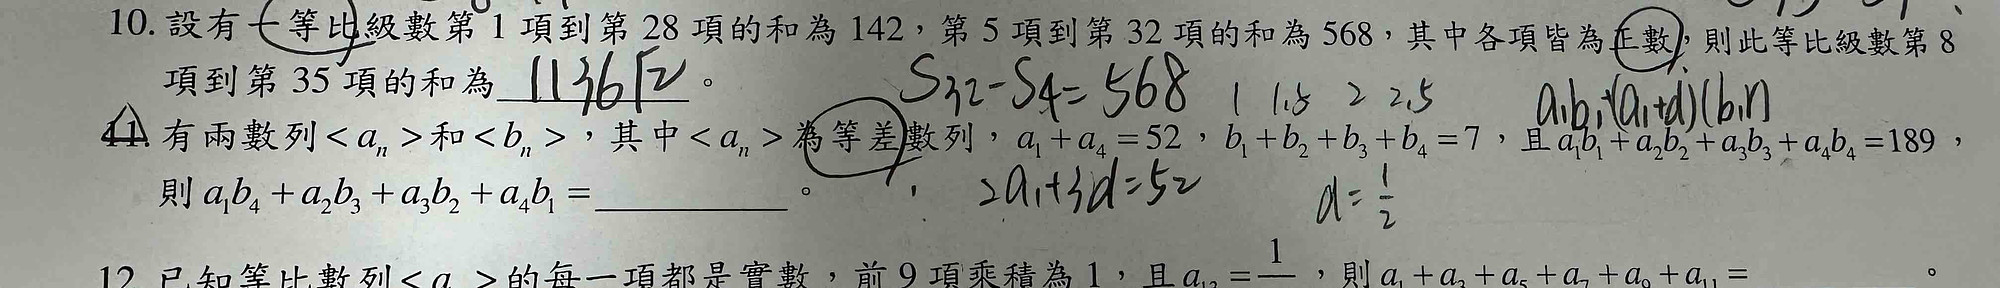 10. 設有一等比級數第 1 項到第 28 項的和為 142，第 5 項到第 32 項的和為 568，其中各項皆為正數，則此等比級數第 8
項到第 35 項的和為 1136√2 。
S32-S4=568
1 1.5 2 2.5
a₁b₁+(a₁+d)(b₁
11. 有兩數列<aₙ>和<bₙ>，其中<aₙ>為等差數列，a₁+a₄=52，b₁+b₂+b₃+b₄=7，且a₁b₁+a₂b₂+a₃b₃+a₄b₄=189，
則 a₁b₄+a₂b₃+a₃b₂+a₄b₁=＿＿＿＿＿。
2a₁+3d=52
d=1/2
12. 已知等比數列<a >的每一項都是實數，前 9 項乘積為 1，且a₁₂=1 ，則 a₁+a₃+a₅+a₇+a₉+a₁₁= 。